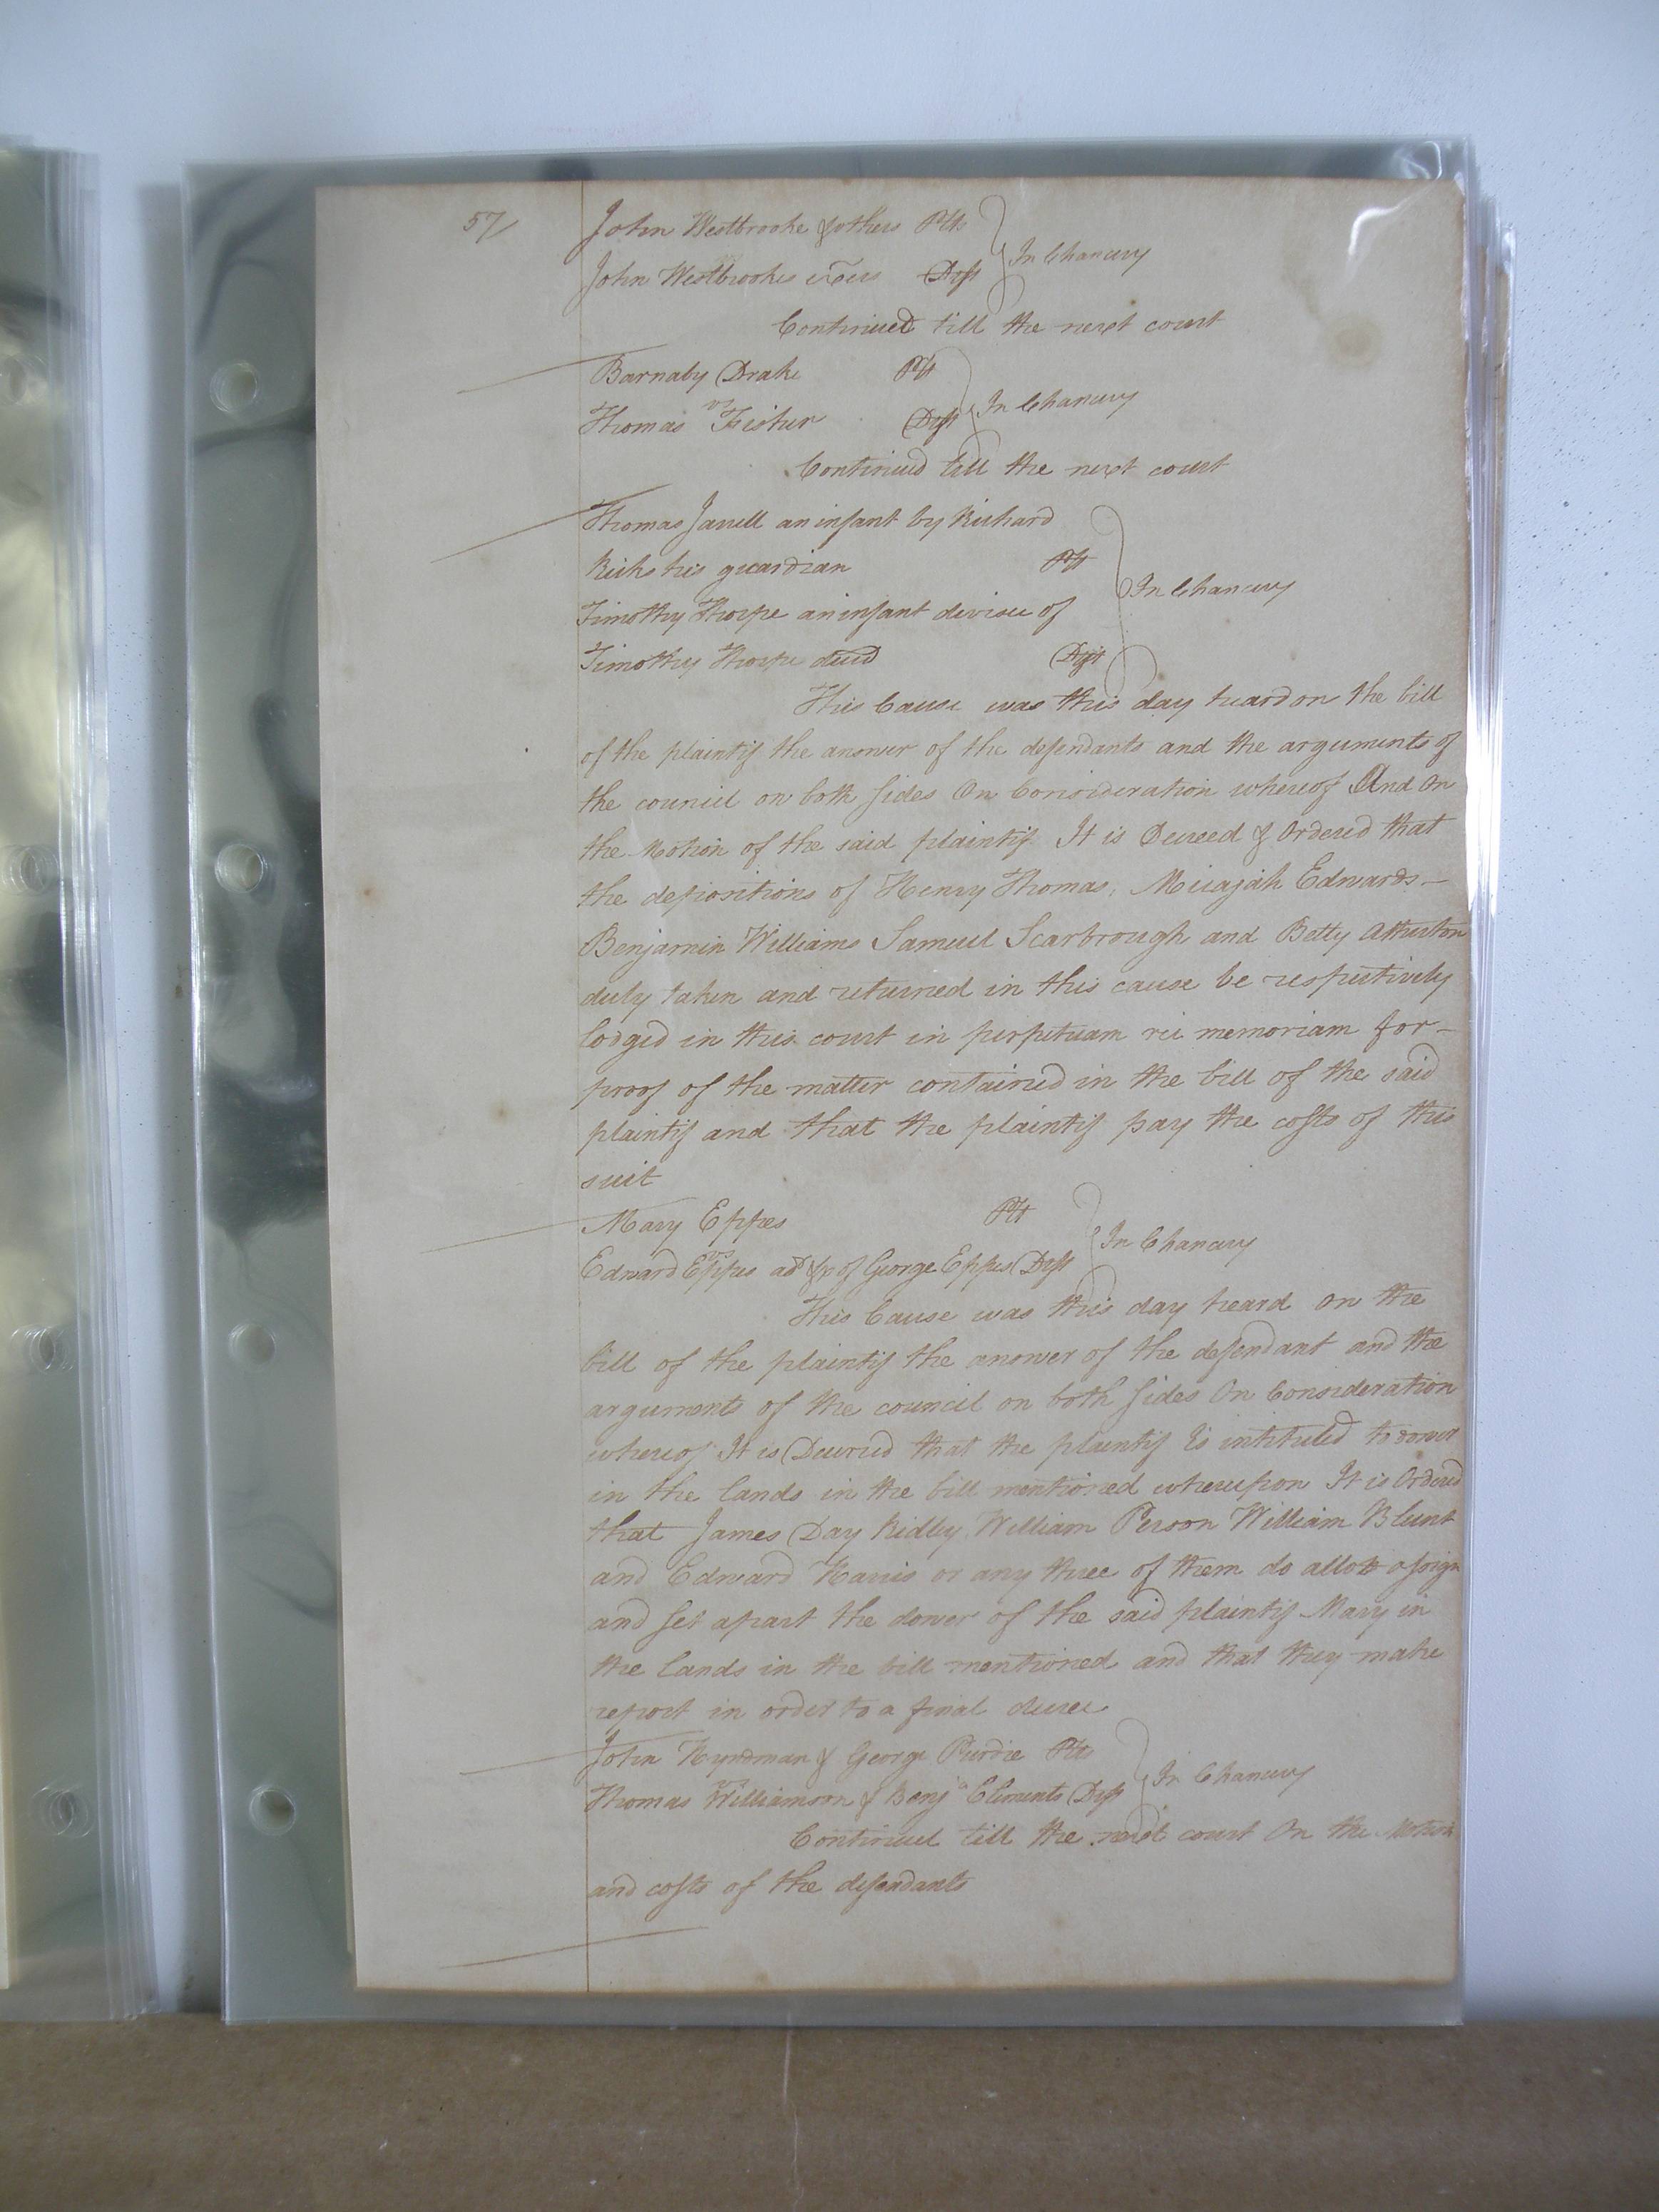 57/
John Westbrooke & others Plts
John Westbrookes exors Deft
In Chancery
Continued till the next court
Barnaby Drake Plt
vs
Thomas Fisher Deft
In Chancery
Continued till the next court
Thomas Jarrell an infant by Richard
Ricks his guardian Plt
Timothy Thorpe an infant devisee of
Timothy Thorpe decd Deft
In Chancery
This Cause was this day heard on the bill
of the plaintif the answer of the defendants and the arguments of
the council on both sides On Consideration whereof And On
the Motion of the said plaintif It is Decreed & Ordered that
the depositions of Henry Thomas, Micajah Edwards
Benjamin Williams Samuel Scarbrough and Betty Atherton
duly taken and returned in this cause be respectively
lodged in this court in perpetuam rei memoriam for
proof of the matter contained in the bill of the said
plaintif and that the plaintif pay the costs of this
suit
Mary Eppes Plt
vs
Edward Eppes ad &c of George Eppes Deft
In Chancery
This Cause was this day heard on the
bill of the plaintif the answer of the defendant and the
arguments of the council on both sides On Consideration
whereof It is Decreed that the plaintif is intituled to dower
in the lands in the bill mentioned whereupon It is Ordered
that James Day Ridley William Person William Blunt
and Edward Harris or any three of them do allot assign
and set apart the dower of the said plaintif Mary in
the lands in the bill mentioned and that they make
report in order to a final decree
John Hyndman & George Purdie Plts
vs
Thomas Williamson & Benja Clements Defts
In Chancery
Continued till the next court On the Motion
and costs of the defendants